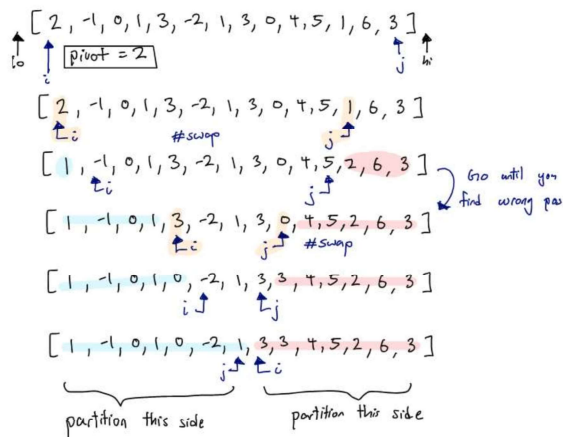 [ 2, -1, 0, 1, 3, -2, 1, 3, 0, 4, 5, 1, 6, 3 ]
lo i pivot = 2 j hi
[ 2, -1, 0, 1, 3, -2, 1, 3, 0, 4, 5, 1, 6, 3 ]
i #swap j
[ 1, -1, 0, 1, 3, -2, 1, 3, 0, 4, 5, 2, 6, 3 ]
i j
Go until you
find wrong
[ 1, -1, 0, 1, 3, -2, 1, 3, 0, 4, 5, 2, 6, 3 ]
i j #swap
[ 1, -1, 0, 1, 0, -2, 1, 3, 3, 4, 5, 2, 6, 3 ]
i j
[ 1, -1, 0, 1, 0, -2, 1, 3, 3, 4, 5, 2, 6, 3 ]
j i
partition this side partition this side